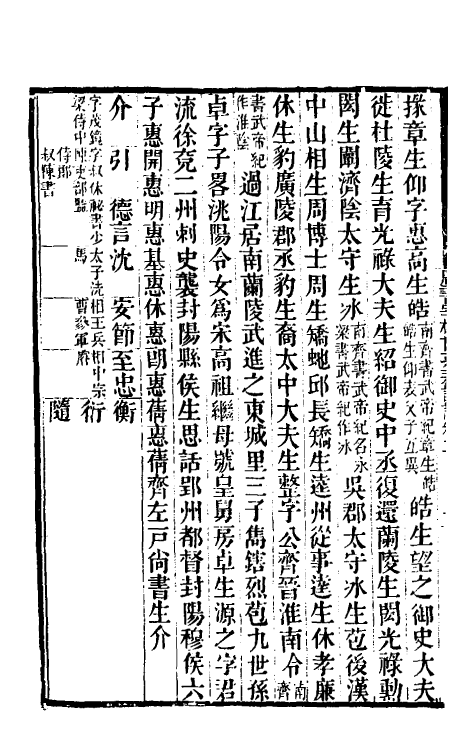 掾章生仰字惠高生皓南齊書武帝紀章生皓皓生仰衣文子互異皓生望之御史大夫
徙杜陵生育光祿大夫生紹御史中丞復還蘭陵生閎光祿勳
閎生闡濟陰太守生冰南齊書武帝紀名永梁書武帝紀作冰吳郡太守冰生苞後漢
中山相生周博士周生矯虵邱長矯生逵州從事逵生休孝廉
休生豹廣陵郡丞豹生裔太中大夫生整字公齊晉淮南令南齊
書武帝紀作淮陰過江居南蘭陵武進之東城里三子雋鎋烈苞九世孫
卓字子畧洮陽令女為宋高祖繼母號皇舅房卓生源之字君
流徐兗二州刺史襲封陽縣侯生思話郢州都督封陽穆侯六
子惠開惠明惠基惠休惠朗惠蒨惠蒨齊左戶尚書生介
介 引 德言沈 安節至忠衡
字茂鏡字叔休秘書少太子洗相王兵相中宗
梁侍中陳吏部監 馬 曹參軍府 衍
侍郎
叔陳書 隨